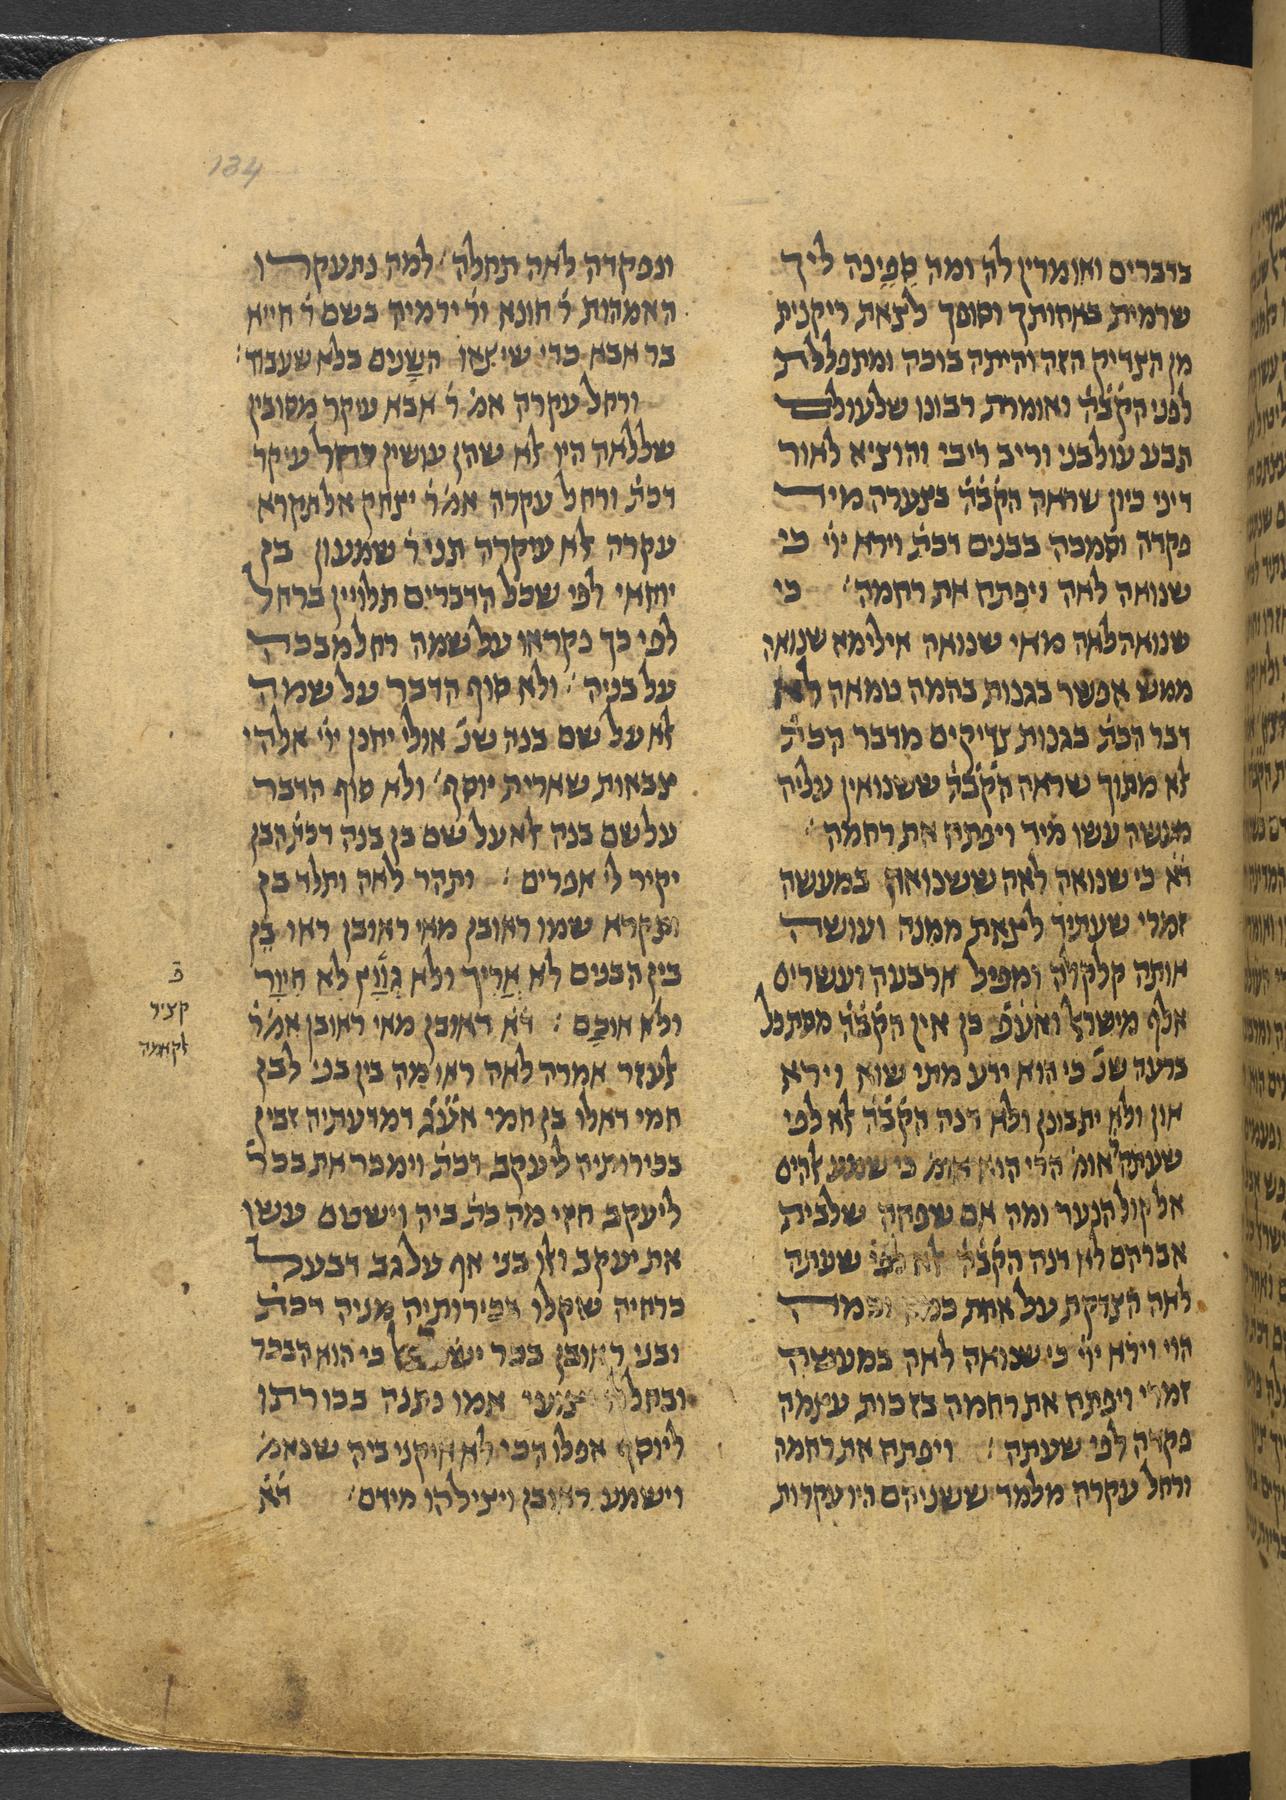 134
בדברים ואומרין לה ומה ספינה ליך
שרמית באחותך וסופך לצאת ריקנית
מן הצדיק הזה והיתה בוכה ומתפללת
לפני הק'ב'ה' ואומרת רבונו שלעולם
תבע עולבני וריב ריבי והוציא לאור
דיני כיון שראה הקב'ה' בצערה מיד
פקדה וסמכה בבנים דכת' וירא י'י' כי
שנואה לאה ויפתח את רחמה׃ כי
שנואה לאה מאי שנואה אילימא שנואה
ממש אפשר בגנות בהמה טמאה לא
דבר הכת' בגנות צדיקים מדבר הכת'
לא מתוך שראה הק'ב'ה' ששנואין עליה
מעשה עשו מיד ויפתח את רחמה׃
ד'א' כי שנואה לאה ששנואה במעשה
זמרי שעתיד לצאת ממנה ועושה
אותה קלקלה ומפיל ארבעה ועשרים
אלף מישראל ואע'פ' כן אין הק'ב'ה' מסתכל
ברעה שנ' כי הוא ידע מתי שוא וירא
און ולא יתבונן ולא דנה הק'ב'ה' לא לפי
שעתה אומ' הרי הוא אומ' כי שמע אלהים
אל קול הנער ומה אם שפחה שלבית
אברהם לא דנה הק'ב'ה' לא לפי שעתה
לאה הצדקת על אחת כמה וכמה
הוי וירא י'י' כי שנואה לאה במעשה
זמרי ויפתח את רחמה בזכות עצמה
פקדה לפי שעתה׃ ויפתח את רחמה
ורחל עקרה מלמד ששניהם היו עקרות
ונפקדה לאה תחלה׃ למה נתעקרו
האמהות ר' חונא ור' ירמיה בשם ר' חייא
בר אבא כדי שיצאו השנים בלא שעבוד׃
ורחל עקרה אמ' ר' אבא עיקר מסובין
שללאה היו לא שהן עושין רחל עיקר
דכת' ורחל עקרה אמ' ר' יצחק אל תקרא
עקרה לא עיקרה תני ר' שמעון בן
יוחאי לפי שכל הדברים תלויין ברחל
לפי כך נקראו על שמה רחל מבכה
על בניה׃ ולא סוף הדבר על שמה
לא על שם בנה שנ' אולי יחנן י'י' אלהי
צבאות שארית יוסף׃ ולא סוף הדבר
על שם בנה לא על שם בן בנה דכת' הבן
יקיר לי אפרים׃ ותהר לאה ותלד בן
ותקרא שמו ראובן מאי ראובן ראו בן
בין הבנים לא אריך ולא גוץ לא חיור
ולא אוכם׃ ד'א' ראובן מאי ראובן אמ' ר'
לעזר אמרה לאה ראו מה בין בני לבן
חמי דאלו בן חמי אע'ג' דמדעתיה זבין
בכירותיה ליעקב דכת' וימכר את בכר'
ליעקב חזי מה כת' ביה וישטם עשו
את יעקב ואלו בני אף על גב דבעל
כרחיה שקלו בכירותיה מניה דכת'
ובני ראובן בכר ישראל כי הוא הבכר
ובחללו יצועי אמו נתנה בכורתו
ליוסף אפלו הכי לא איקני ביה שנאמ'
וישמע ראובן ויצילהו מידם׃ ד'א'
קציר